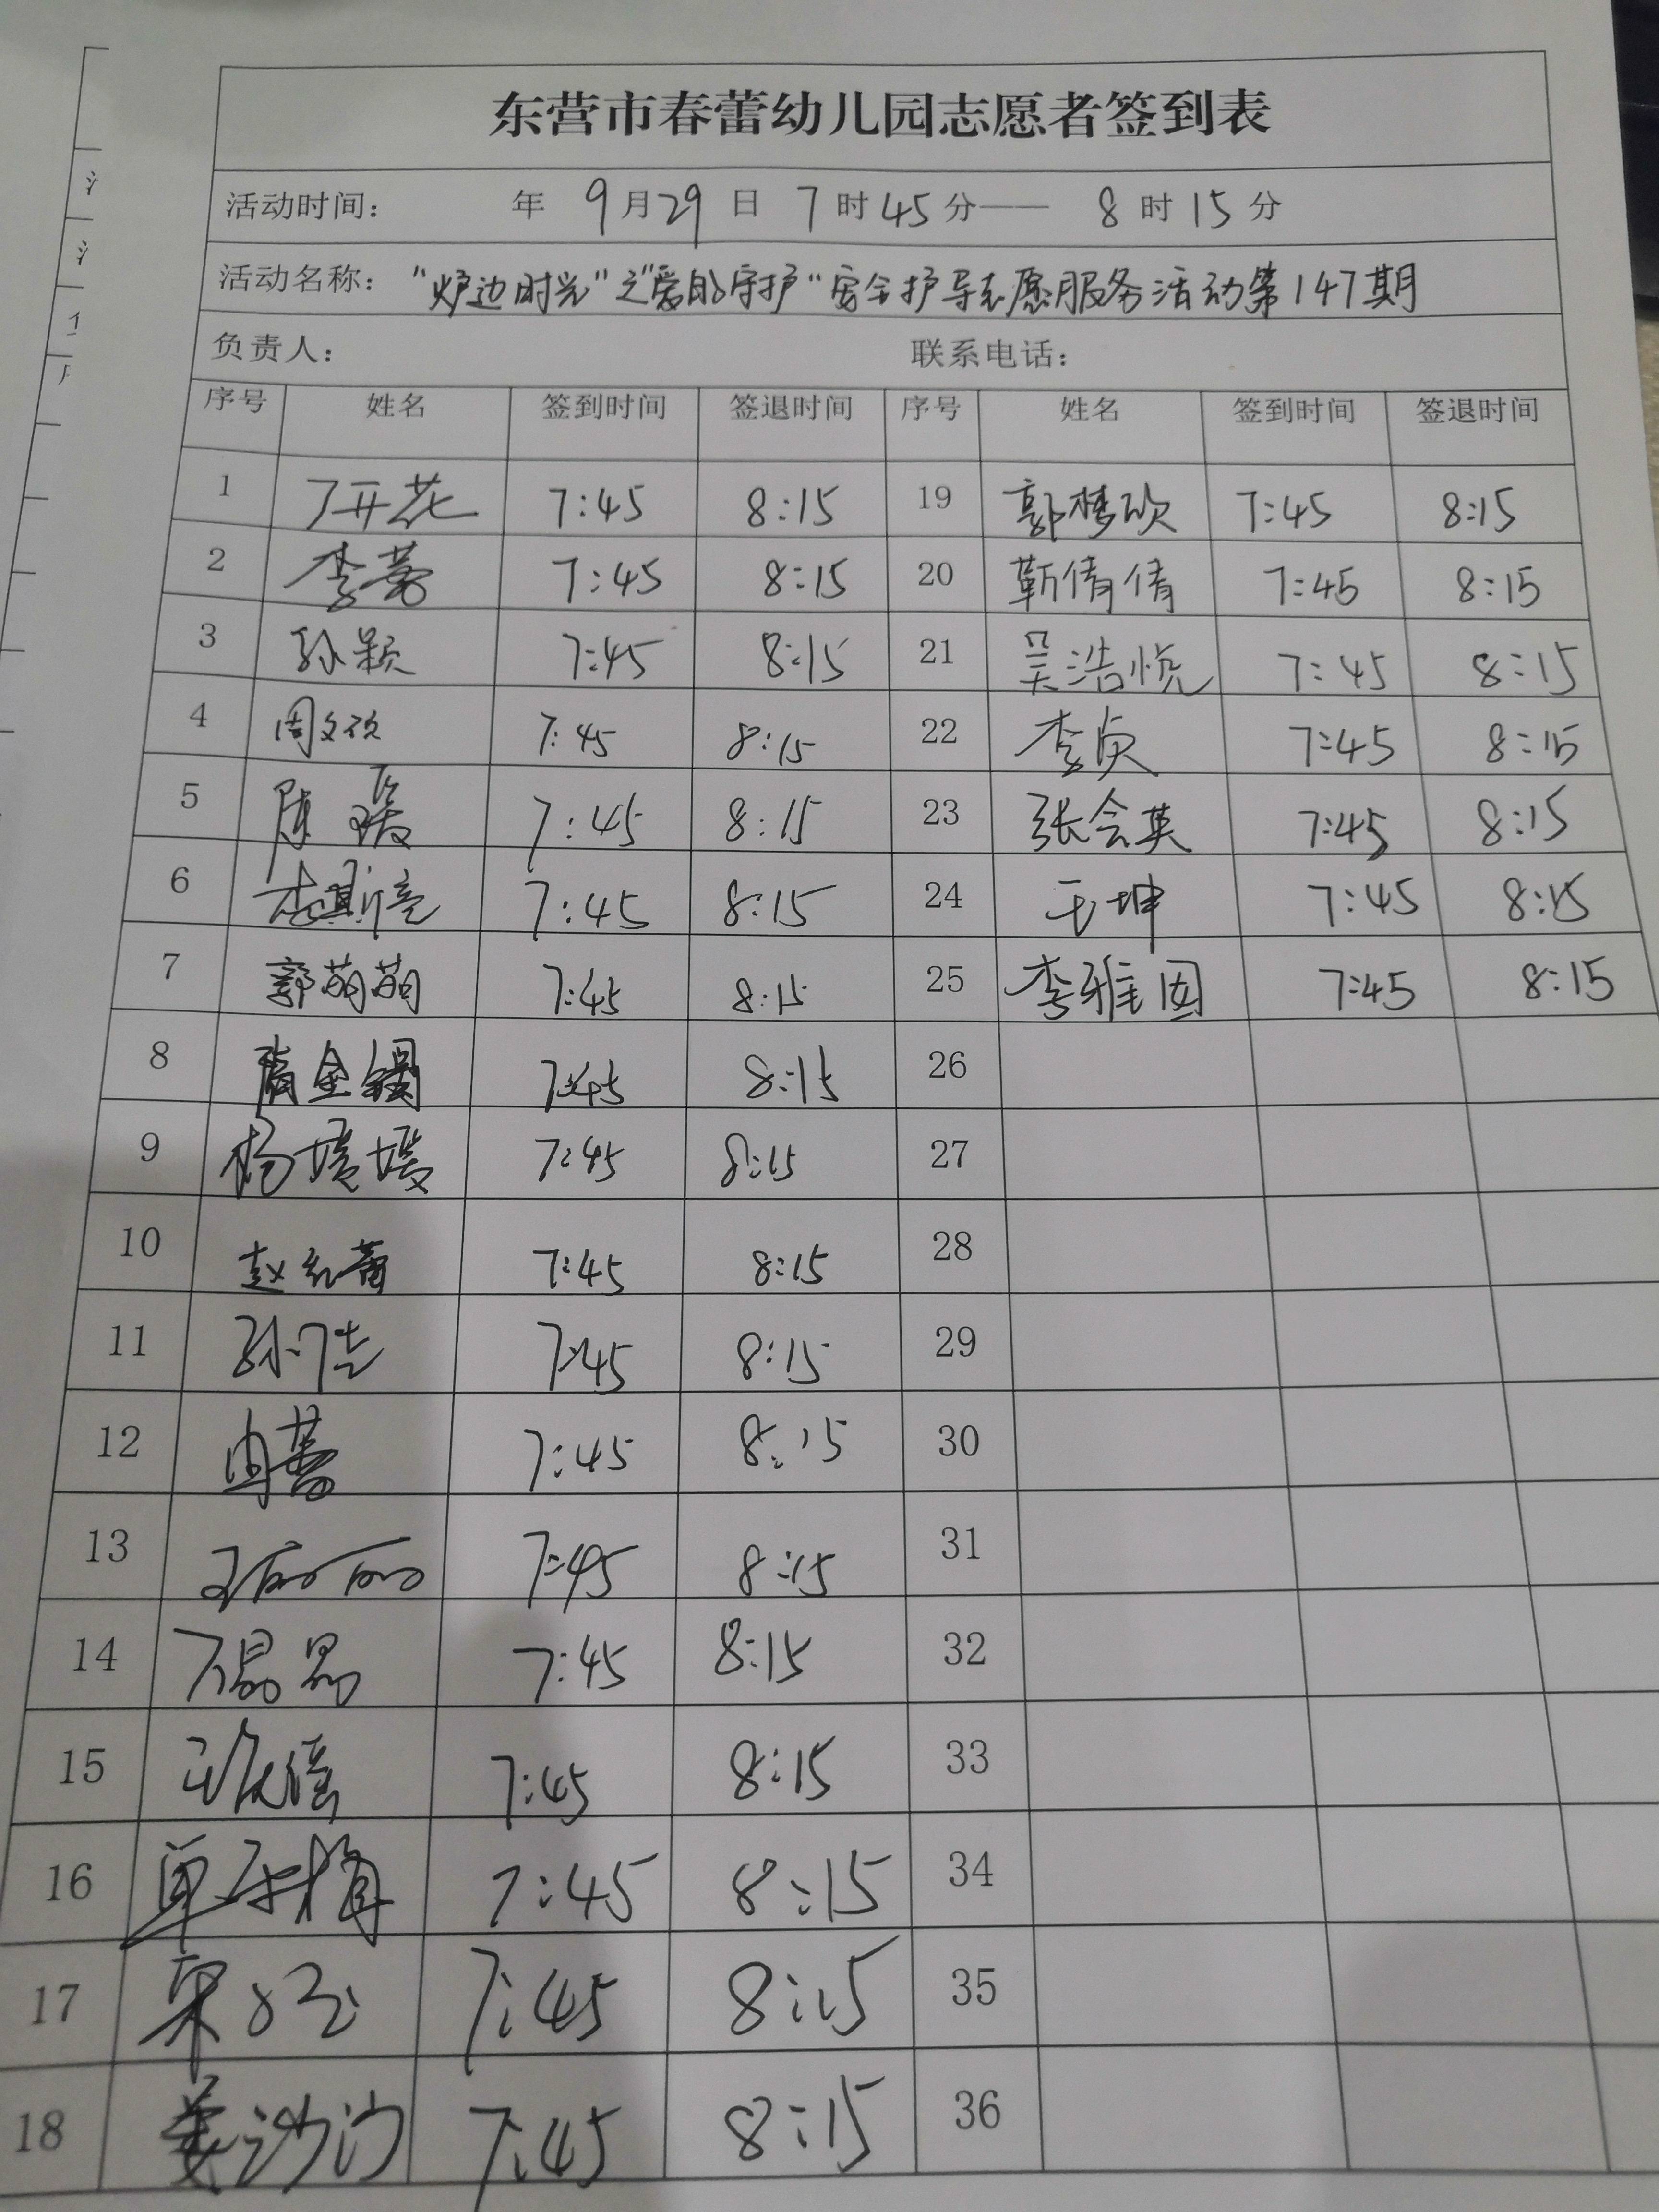 东营市春蕾幼儿园志愿者签到表
活动时间： 年 9月29日 7时45分—— 8时15分
活动名称：“炉边时光”之“爱的守护”安全护导志愿服务活动第147期
负责人： 联系电话：
序号 姓名 签到时间 签退时间 序号 姓名 签到时间 签退时间
1 丁开花 7:45 8:15 19 郭梦欣 7:45 8:15
2 李蕾 7:45 8:15 20 靳倩倩 7:45 8:15
3 孙颖 7:45 8:15 21 吴浩悦 7:45 8:15
4 周文欣 7:45 8:15 22 李贞 7:45 8:15
5 陈瑗 7:45 8:15 23 张会英 7:45 8:15
6 7:45 8:15 24 王坤 7:45 8:15
7 郭萌萌 7:45 8:15 25 李雅囡 7:45 8:15
8 7:45 8:15 26
9 杨媛媛 7:45 8:15 27
10 赵红蕾 7:45 8:15 28
11 孙 7:45 8:15 29
12 由蕾 7:45 8:15 30
13 王丽丽 7:45 8:15 31
14 7:45 8:15 32
15 7:45 8:15 33
16 单 梅 7:45 8:15 34
17 7:45 8:15 35
18 姜沙沙 7:45 8:15 36